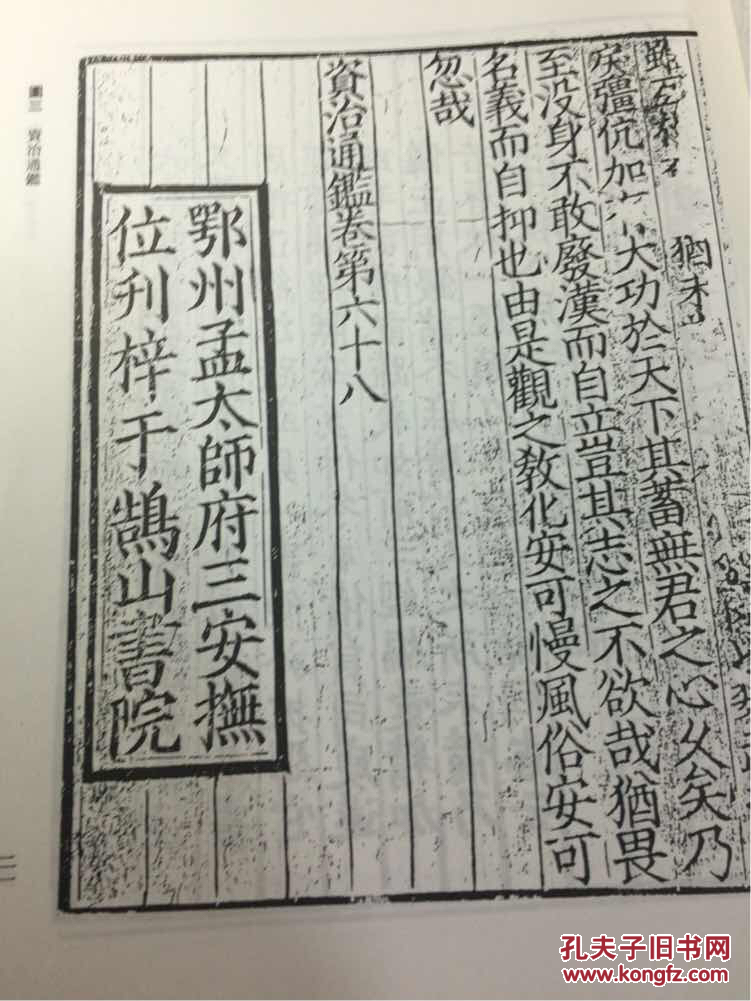 猶未
戾彊伉加大功於天下其蓄無君之心乆矣乃
至没身不敢廢漢而自立豈其志之不欲哉猶畏
名義而自抑也由是觀之教化安可慢風俗安可
忽哉
資治通鑑卷第六十八
鄂州孟太師府三安撫
位刋梓于鵠山書院
圖三 資治通鑑
孔夫子旧书网
www.kongfz.com